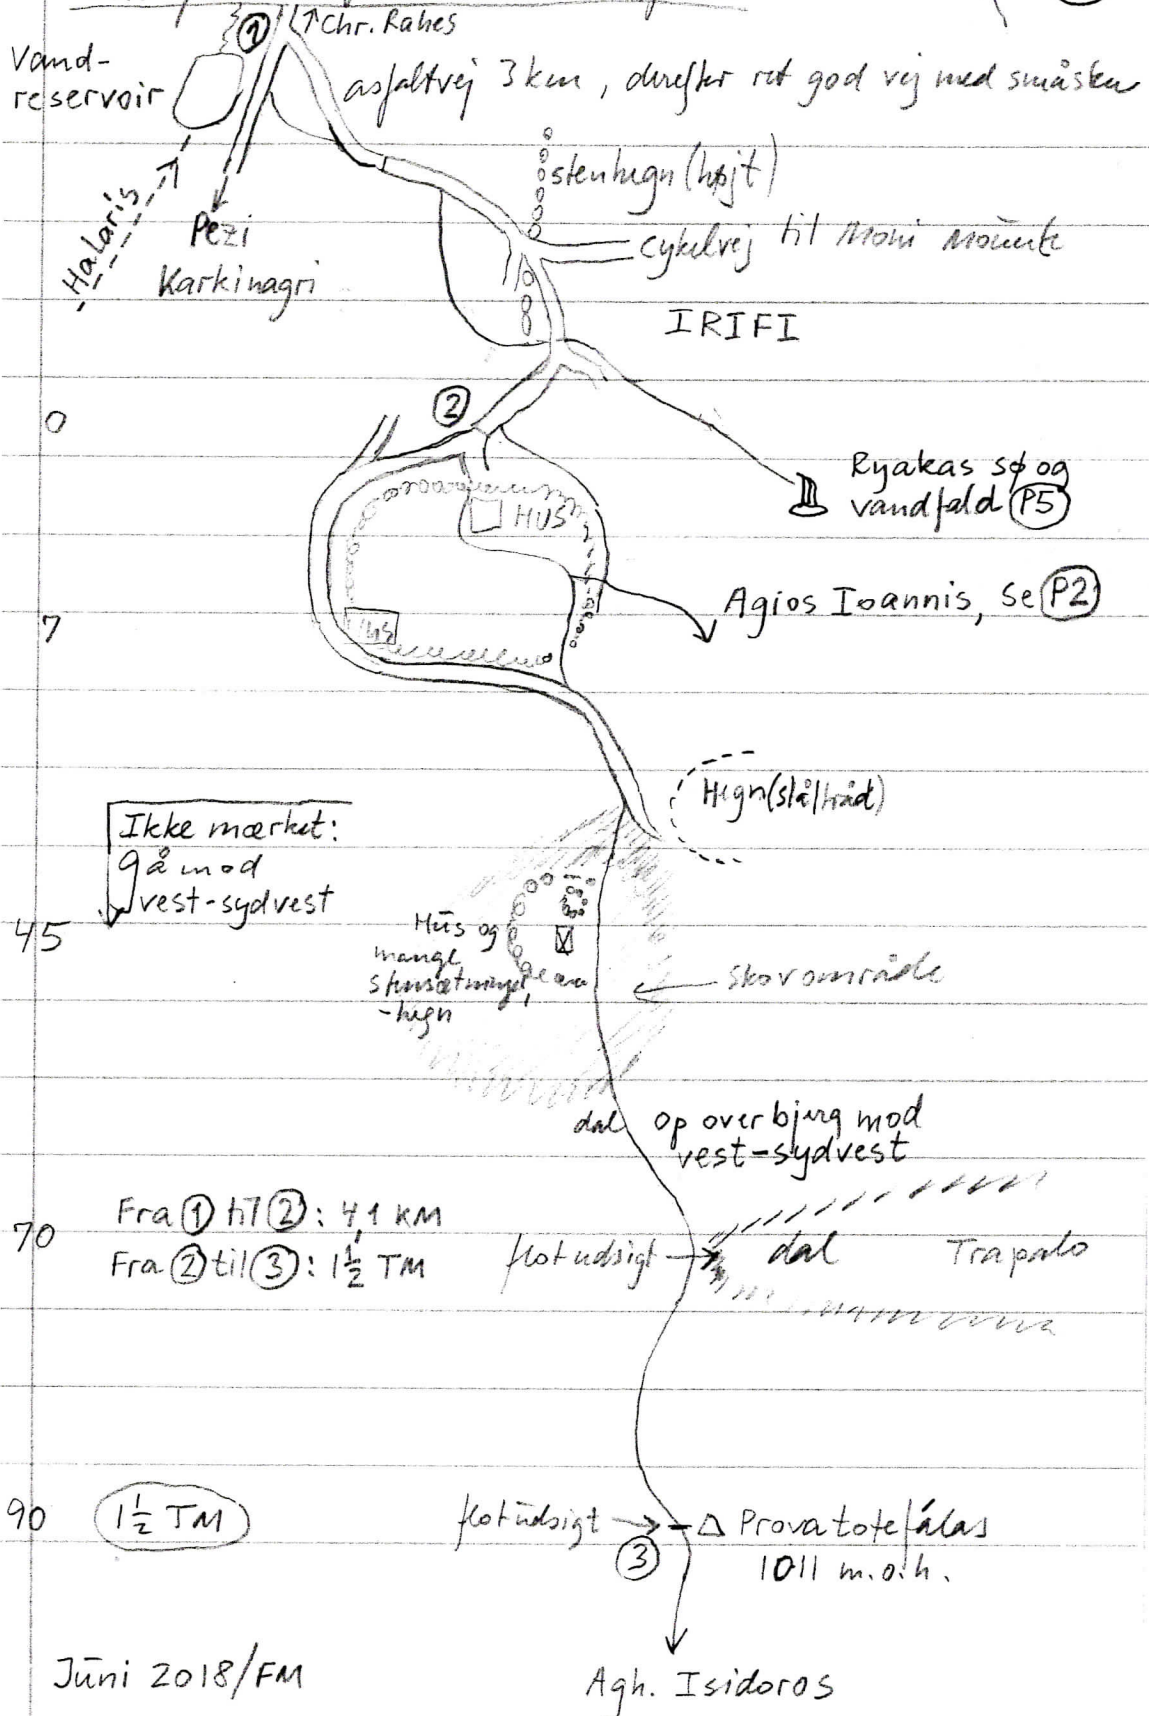 ① ↑ Chr. Rahes
Vand-
reservoir
asfaltvej 3 km, derefter ret god vej med småsten
Halaris
Pezi
Karkinagri
stenhegn (højt)
cykelvej til Moni Mounte
IRIFI
②
0
Ryakas sø og
vandfald P5
HUS
Agios Ioannis, se P2
7
HUS
Hegn (ståltråd)
Ikke mærket:
gå mod
vest-sydvest
45
Hus og
mange
stensætninger,
-hegn
skovområde
dal
op over bjerg mod
vest-sydvest
Fra ① til ②: 4,1 KM
70
Fra ② til ③: 1½ TM
flot udsigt
dal
Trapalo
90
1½ TM
flot udsigt
③
Provatotefálas
1011 m.o.h.
Juni 2018/FM
Agh. Isidoros